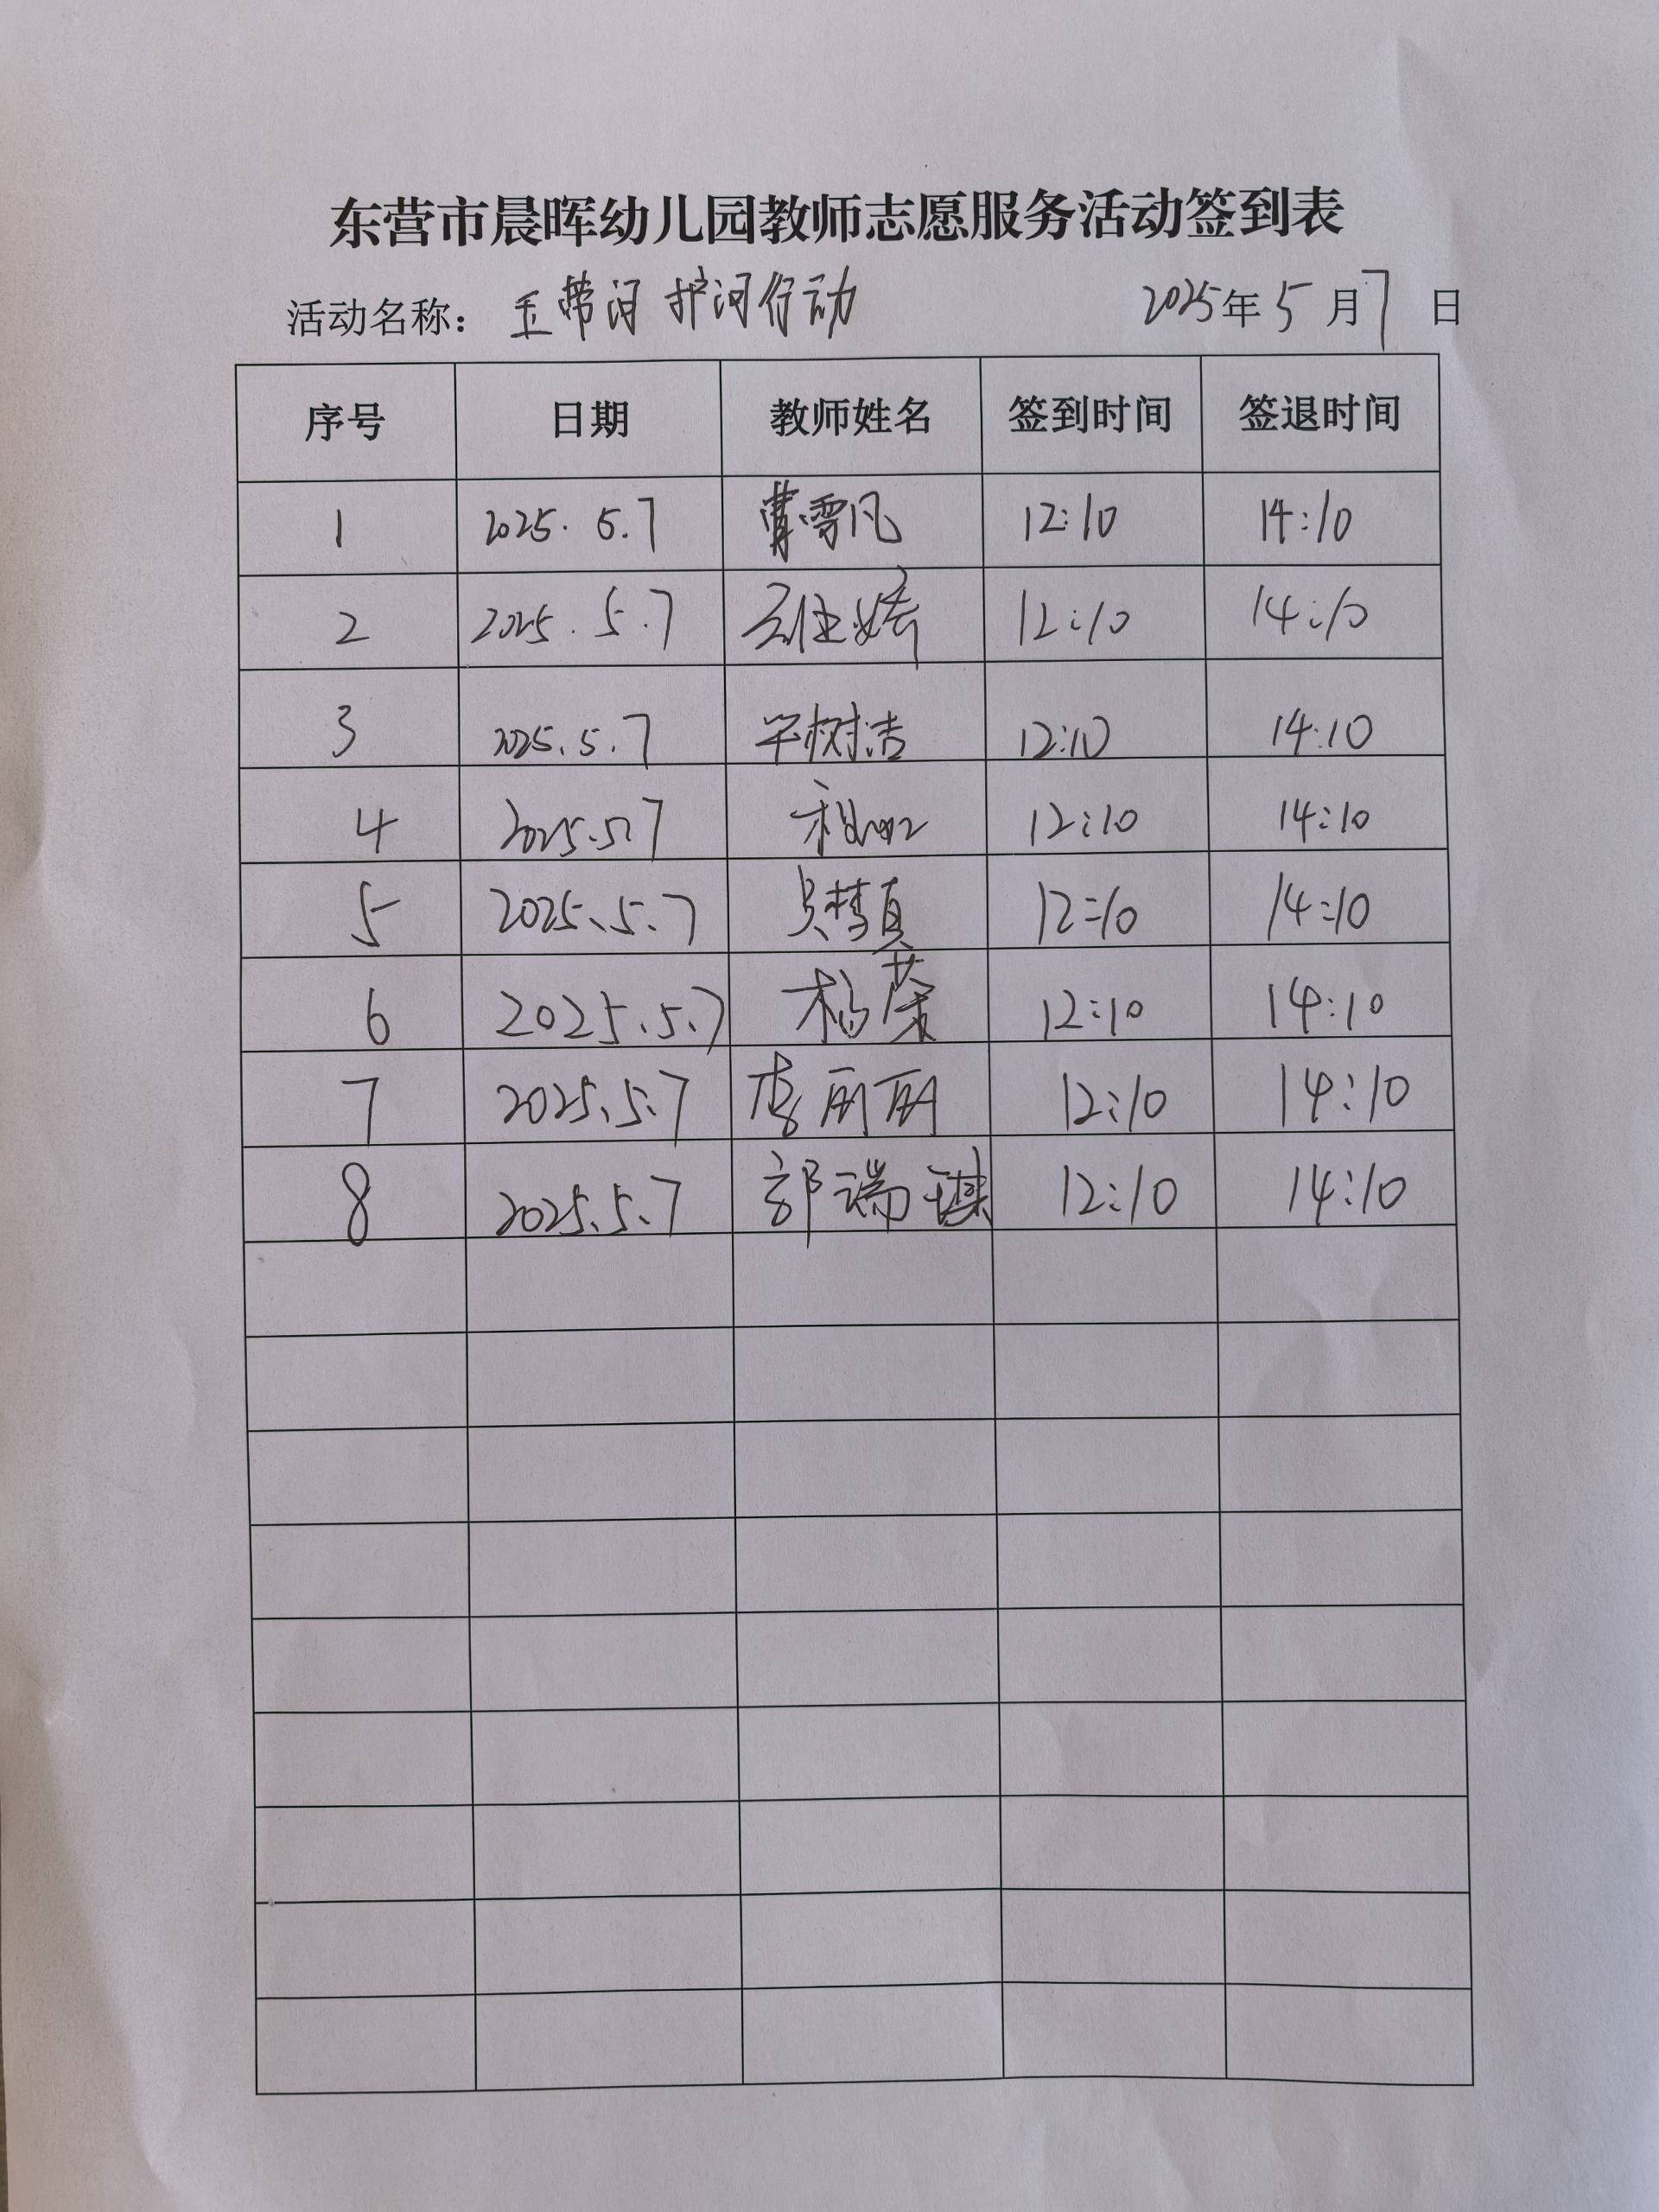 东营市晨晖幼儿园教师志愿服务活动签到表
活动名称： 玉带河护河行动 2025年5月7日
序号 日期 教师姓名 签到时间 签退时间
1 2025.5.7 雪凡 12:10 14:10
2 2025.5.7 12:10 14:10
3 2025.5.7 树洁 12:10 14:10
4 2025.5.7 12:10 14:10
5 2025.5.7 吴梦真 12:10 14:10
6 2025.5.7 杨荣 12:10 14:10
7 2025.5.7 李丽丽 12:10 14:10
8 2025.5.7 郭瑞琪 12:10 14:10